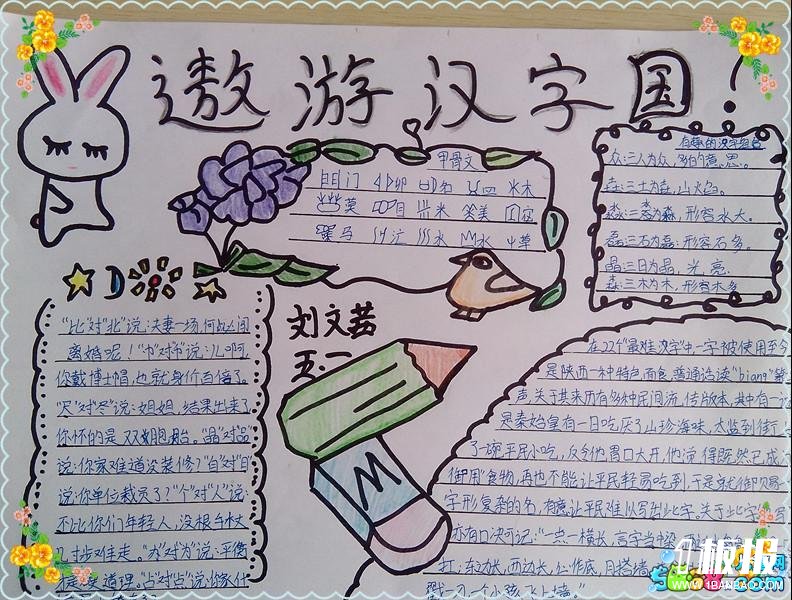 遨游汉字国
甲骨文
门 卯 名 四 木
莫 目 米 美
马 江 水 水 草
有趣的汉字组合
众:三人为众,多的意思。
焱:三火为焱,火焰。
淼:三水为淼,形容水大。
磊:三石为磊,形容石多。
晶:三日为晶,光亮。
森:三木为木,形容木多
刘文茜
五·一
"比"对"北"说:夫妻一场,何必闹
离婚呢!"巾"对"币"说:儿啊
你戴博士帽,也就身价百倍了。
"尺"对"尽"说:姐姐,结果出来了
你怀的是双胞胎。"晶"对"品"
说:你家难道没装修?"自"对"目"
说:你单位裁员了?"个"对"人"说:
不比你们年轻人,没根手杖
寸步难走。"办"对"为"说:平衡
"占"对"点"说:你家什
在22个"最难汉字"中,一字被使用至今
是陕西一种特产面食,普通话读"biang"第
声,关于其来历有多种民间流传版本,其中有一
是秦始皇有一日吃厌了山珍海味,太监到街
了一碗平民小吃,反令他胃口大开,他觉得既然已成
御用食物,再也不能让平民轻易吃到,于是就御赐
字形复杂的名,想意让平民难以写出此字。关于此字
亦有口决可记:"一点一横长,言字当中
扛;东边长,西边长,
M
板报网
WWW.1BANBAO.COM